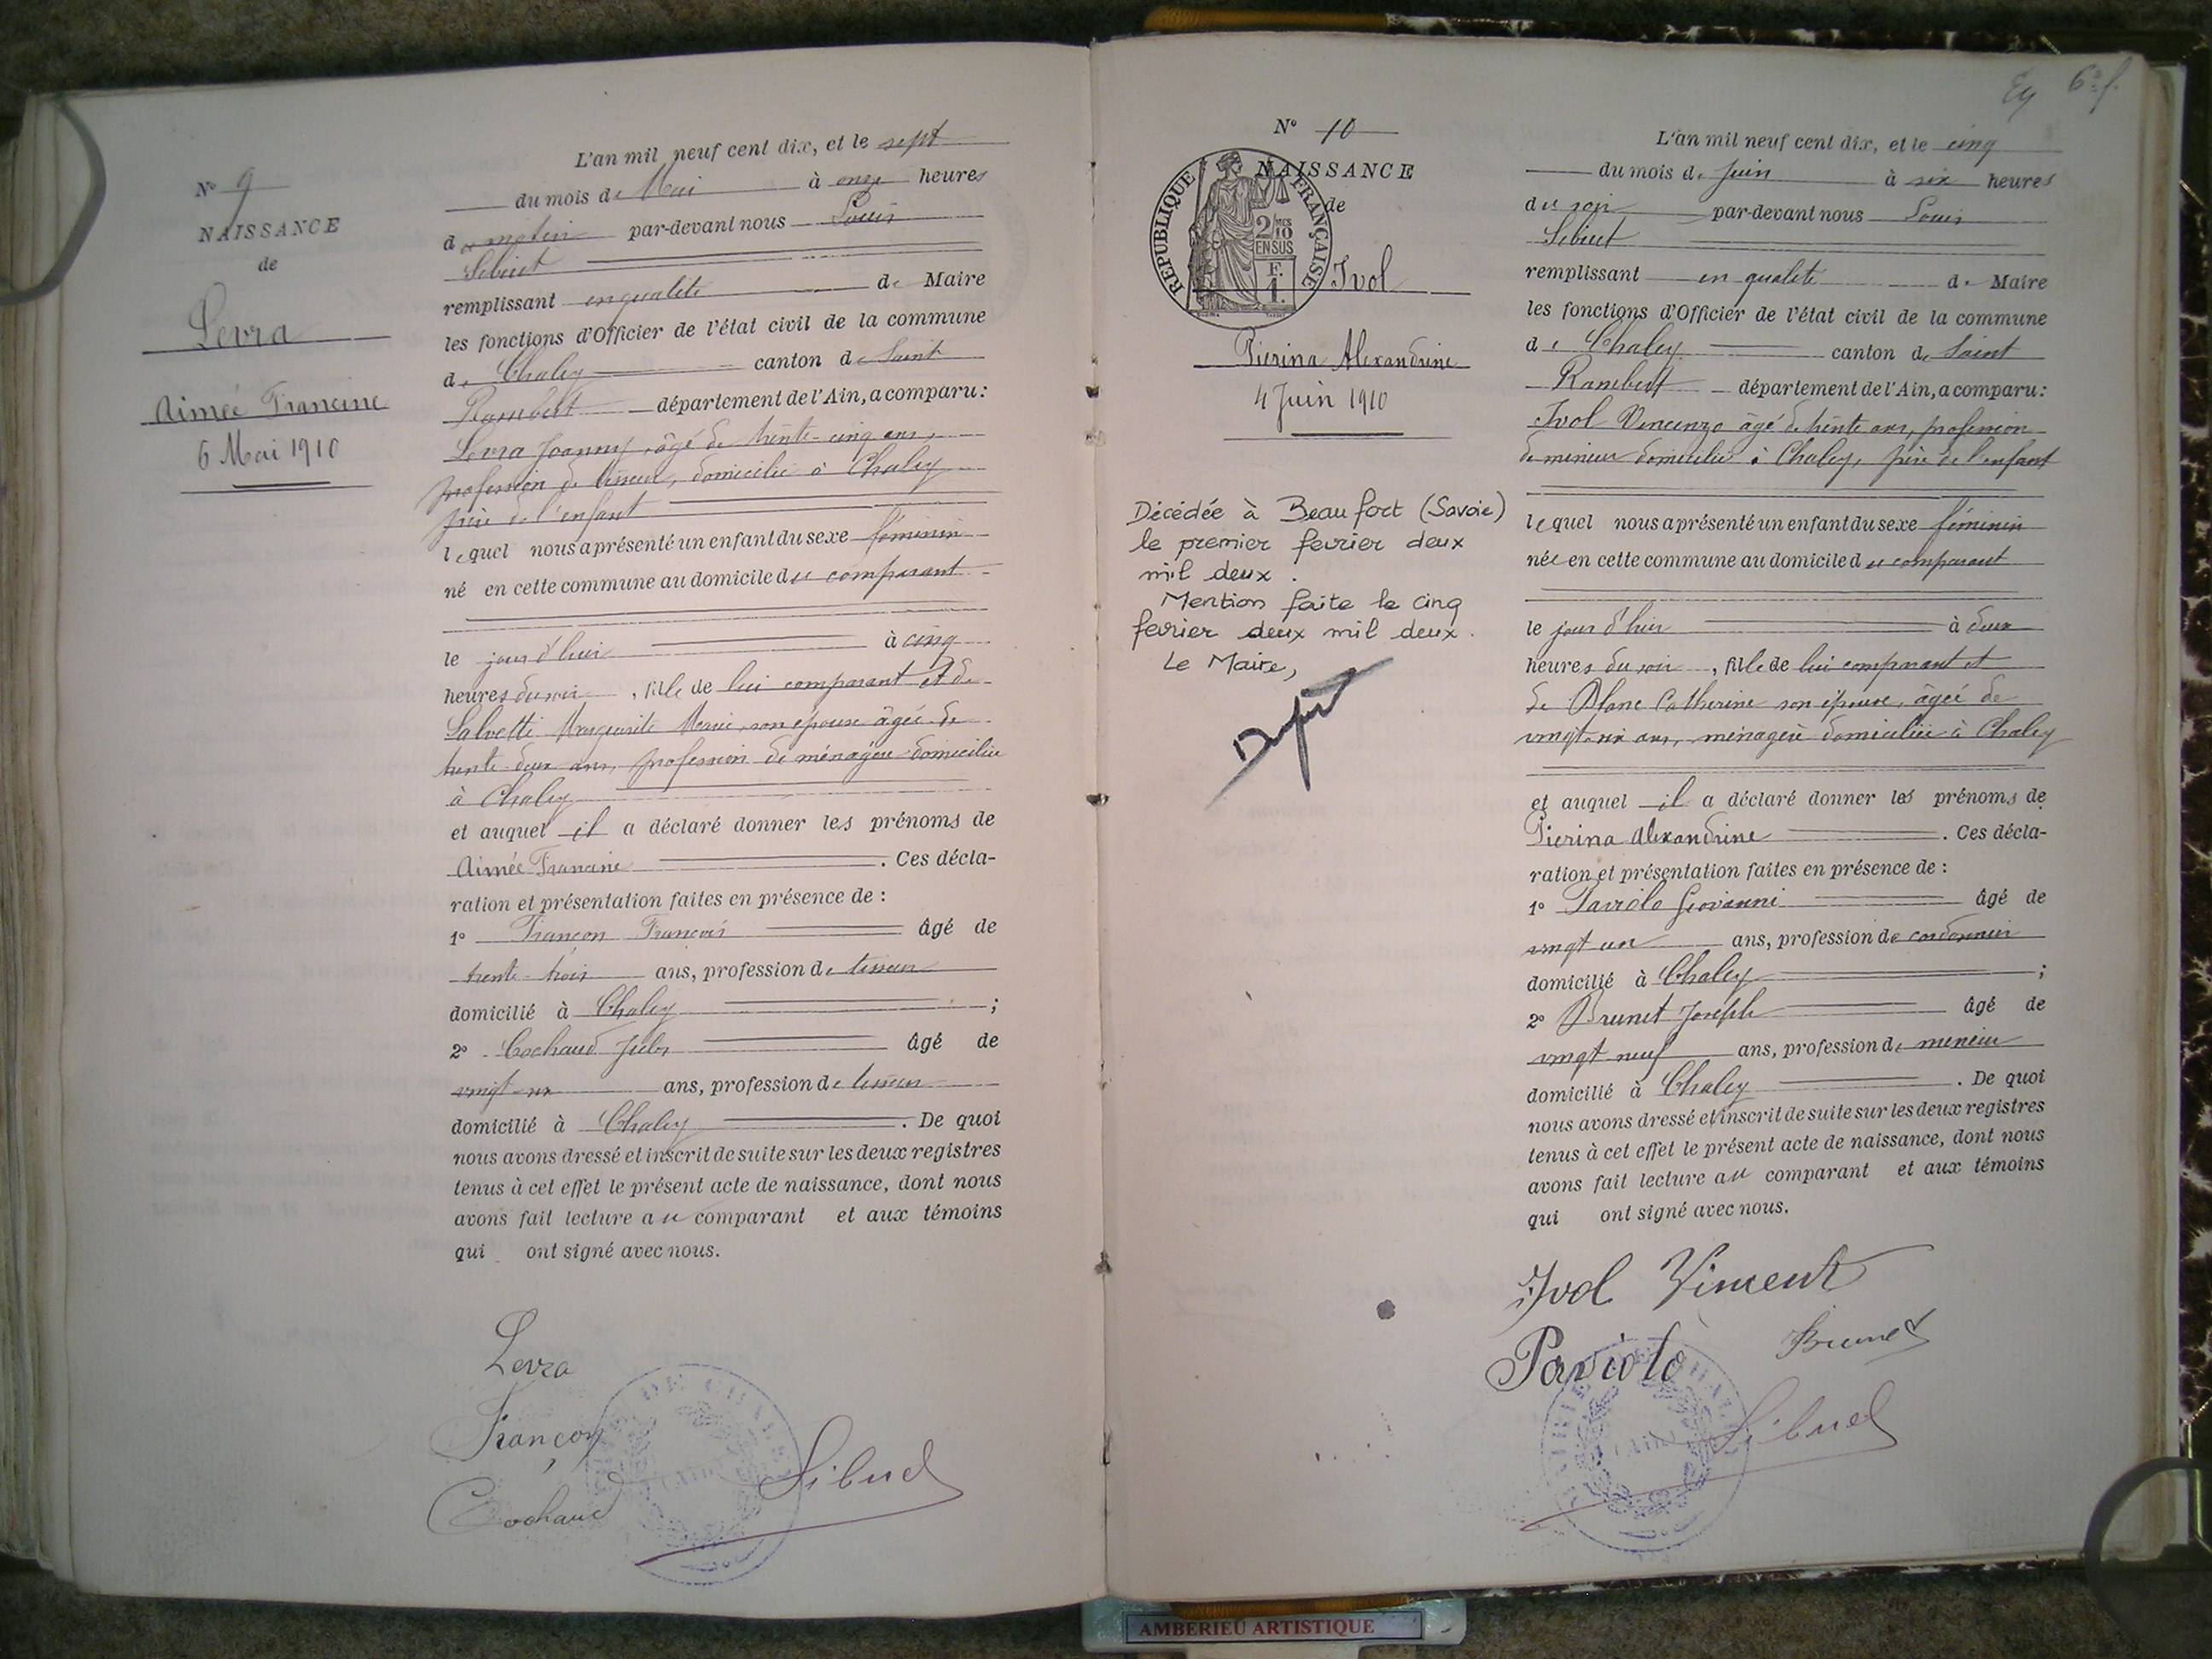 N° 9
NAISSANCE
de
Levra
Aimée Francine
6 Mai 1910
L'an mil neuf cent dix, et le sept
du mois de Mai à onze heures
du matin par-devant nous Louis
Sibuet
remplissant en qualité de Maire
les fonctions d'Officier de l'état civil de la commune
de Chaley canton de Saint
Rambert département de l'Ain, a comparu:
Levra Joanny, âgé de trente-cinq ans,
profession de tisseur, domicilié à Chaley
père de l'enfant
lequel nous a présenté un enfant du sexe féminin
né en cette commune au domicile du comparant
le jour d'hier à cinq
heures du soir, fille de lui comparant et de
Salvetti Marguerite Marie, son épouse âgée de
trente-deux ans, profession de ménagère domiciliée
à Chaley
et auquel il a déclaré donner les prénoms de
Aimée Francine. Ces décla-
ration et présentation faites en présence de :
1° Françon François âgé de
trente-trois ans, profession de tisseur
domicilié à Chaley ;
2° Cochaud Jules âgé de
vingt-six ans, profession de tisseur
domicilié à Chaley. De quoi
nous avons dressé et inscrit de suite sur les deux registres
tenus à cet effet le présent acte de naissance, dont nous
avons fait lecture au comparant et aux témoins
qui ont signé avec nous.
Levra
Françon
Cochaud
Sibuet
6e f.
N° 10
NAISSANCE
de
RÉPUBLIQUE FRANÇAISE
2/10 EN SUS
F. 1.
Ivol
Pierina Alexandrine
4 Juin 1910
Décédée à Beaufort (Savoie)
le premier fevrier deux
mil deux.
Mention faite le cinq
fevrier deux mil deux.
Le Maire,
L'an mil neuf cent dix, et le cinq
du mois de Juin à six heures
du soir par-devant nous Louis
Sibuet
remplissant en qualité de Maire
les fonctions d'Officier de l'état civil de la commune
de Chaley canton de Saint
Rambert département de l'Ain, a comparu:
Ivol Vincenzo âgé de trente ans, profession
de mineur domicilié à Chaley, père de l'enfant
lequel nous a présenté un enfant du sexe féminin
née en cette commune au domicile du comparant
le jour d'hier à deux
heures du soir, fille de lui comparant et
de Blanc Catherine son épouse, âgée de
vingt-six ans, ménagère domiciliée à Chaley
et auquel il a déclaré donner les prénoms de
Pierina Alexandrine. Ces décla-
ration et présentation faites en présence de :
1° Paviolo Giovanni âgé de
vingt un ans, profession de cordonnier
domicilié à Chaley ;
2° Brunet Joseph âgé de
vingt neuf ans, profession de mineur
domicilié à Chaley. De quoi
nous avons dressé et inscrit de suite sur les deux registres
tenus à cet effet le présent acte de naissance, dont nous
avons fait lecture au comparant et aux témoins
qui ont signé avec nous.
Ivol Vincent
Paviolo Brunet
Sibuet
AMBERIEU ARTISTIQUE